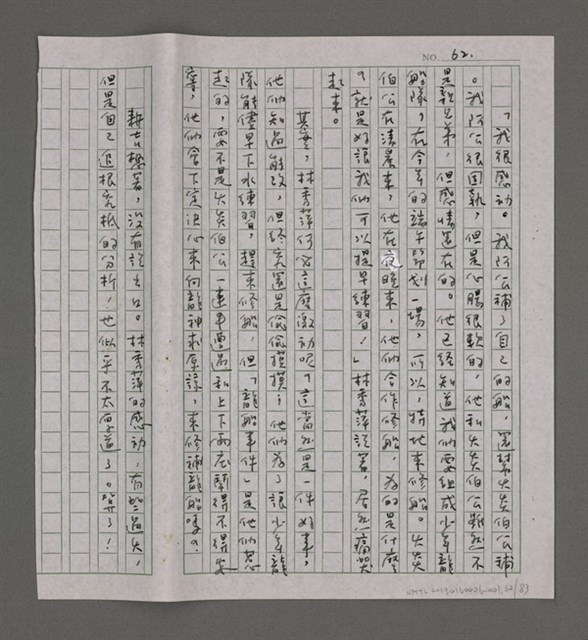 NO. 62.
「我很感動。我阿公補了自己的船，還幫火炎伯公補
。我阿公很固執，但是心腸很軟的，他和火炎伯公雖然不
是親兄弟，但感情還在的。他已經知道我們要組成少年龍
船隊，在今年的端午節划一場，所以，特地來修船。火炎
伯公在清晨來，他在夜晚來，他們合作修船，為的是什麼
？就是好讓我們可以提早練習！」林秀萍說著，居然痛哭
起來。
其實，林秀萍何必這麼激動呢？這當然是一件好事，
他們知過能改，但終究還是偷偷摸摸；他們為了讓少年龍
隊能儘早下水練習，趕來修船，但「龍船事件」是他們惹
起的，要不是火炎伯公一連串遇和上下兩庄鬧得不得安
寧，他們會下定決心來向龍神求原諒，來修補龍船嗎？
耕古想著，沒有說出口。林秀萍的感動，有些過火，
但是自己追根究柢的分析，也似乎不太厚道了。算了！